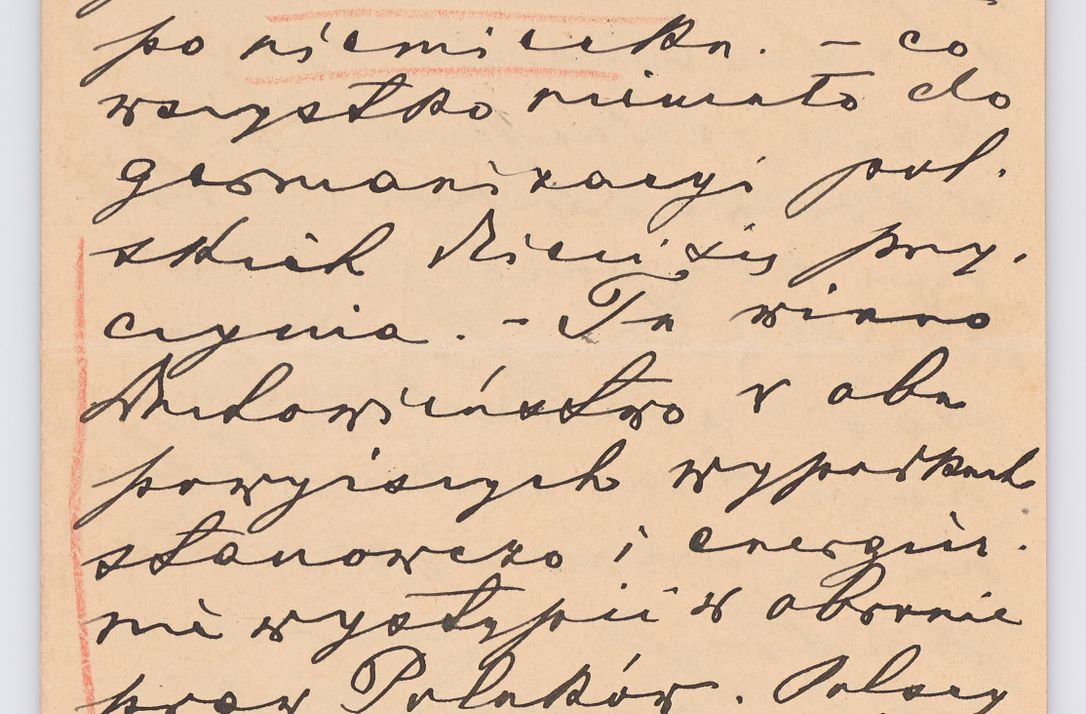 po niemiecku. – co
wszystko niemało do
germanizacyi pol-
skich dzieci się przy-
czynia. – Tu winno
Duchowieństwo w obu
powyższych wypadkach
stanowczo i energicz-
nie wystąpić w obronie
praw Polaków. Polacy